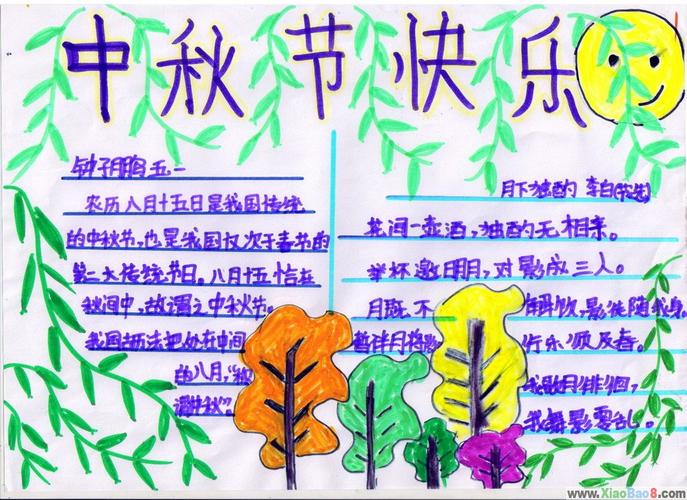 中秋节快乐
钟子鹏 五一
农历八月十五日是我国传统
的中秋节,也是我国仅次于春节的
第二大传统节日。八月十五恰在
秋间中,故谓之中秋节。
我国古历法把处在中间
的八月,"秋
谓中秋"。
月下独酌 李白
花间一壶酒,独酌无相亲。
举杯邀明月,对影成三人。
月既不 解饮,影徒随我身。
暂伴月将影 行乐须及春。
我歌月徘徊,
我舞影零乱。
www.XiaoBao8.com